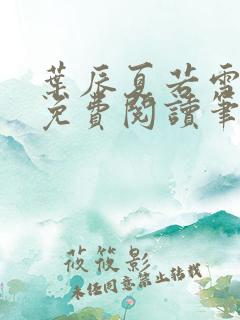 葉辰夏若雪
免費閱讀筆
莜筱影
未经同意禁止转载